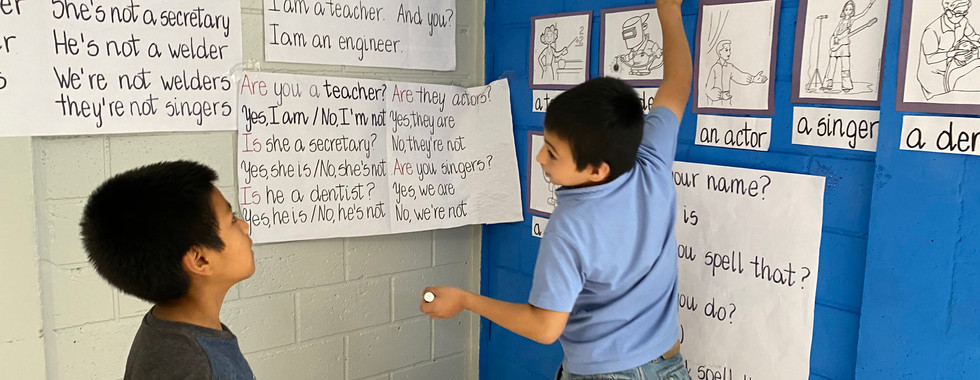 She's not a secretary
He's not a welder
We're not welders
they're not singers
I am a teacher. And you?
I am an engineer.
Are you a teacher?
Yes, I am / No, I'm not
Is she a secretary?
Yes, she is / No, she's not
Is he a dentist?
Yes, he is / No, he's not
Are they actors?
Yes, they are
No, they're not
Are you singers?
Yes, we are
No, we're not
an actor
a singer
a den
your name?
is
ou spell that?
ou do?
spell